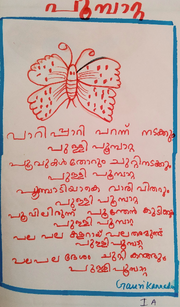 പൂമ്പാറ്റ
പാറി പാറി പറന്ന് നടക്കും
പുള്ളി പൂമ്പാറ്റ
പൂവുകൾതോറും ചുറ്റിനടക്കും
പുള്ളി പൂമ്പാറ്റ
പൂമ്പൊടിയാകെ വാരി വിതറും
പുള്ളി പൂമ്പാറ്റ
പൂവിലിരുന്ന് പൂന്തേൻ കുടിക്കും
പുള്ളി പൂമ്പാറ്റ
പല പല
പുള്ളി പൂമ്പാറ്റ
പല പല ദേശം ചുറ്റി
പുള്ളി പൂമ്പാറ്റ
I A